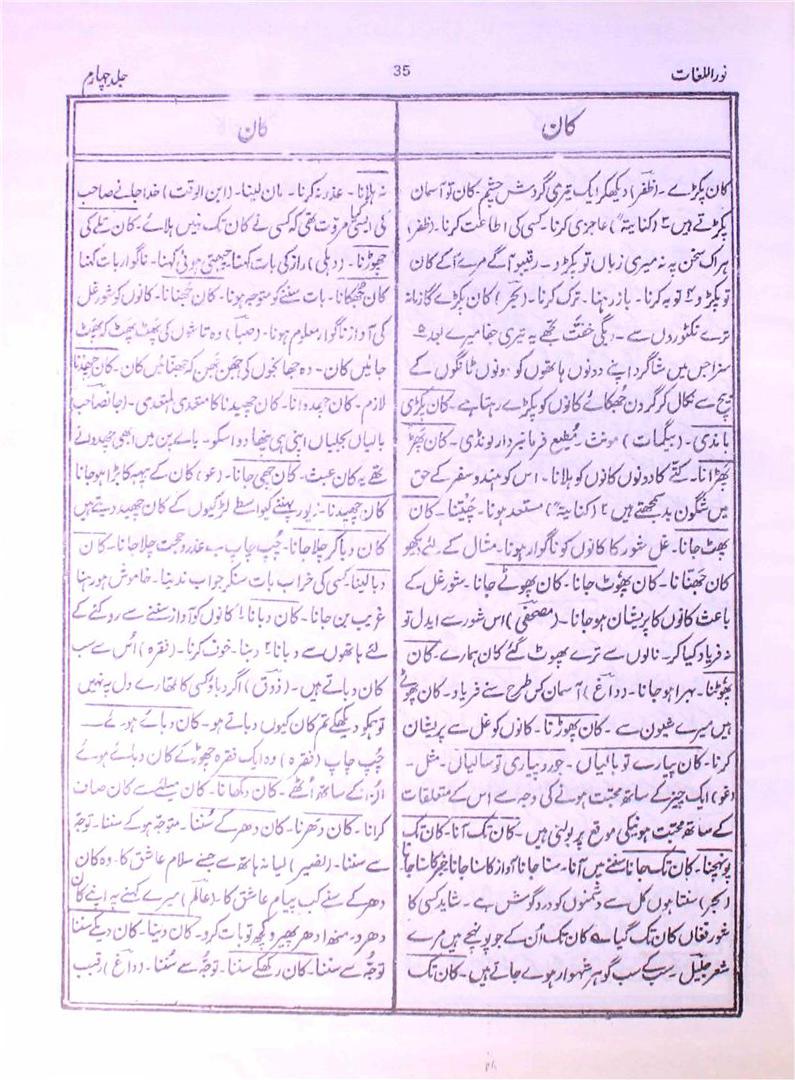 نور اللغات
35
جلد چہارم
کان
کان
کان پکڑے ۔ (ظفر) دیکھکر ایک تیری گردش چشم ۔ کان تو آسمان
پکڑتے ہیں ۳ (کنایتہً) عاجزی کرنا ۔ کسی کی اطاعت کرنا ۔ (ظفر)
ہر اک سخن پہ نہ میری زباں تو پکڑو ۔ رقیبو آگے مرے آکے کان
تو پکڑو ۴ توبہ کرنا ۔ باز رہنا ۔ ترک کرنا ۔ (بحر) کان پکڑے گا زمانہ
ترے نکٹوروں سے ۔ دیگی خفت تجھے یہ تیری جفا میرے بعد ۵
سزا جس میں شاگرد اپنے دونوں ہاتھوں کو دونوں ٹانگوں کے
بیچ سے نکال کر گردن جھکائے کانوں کو پکڑے رہتا ہے ۔ کان پکڑی
باندی ۔ (بیگمات) مونث ۔ مطیع فرمانبردار لونڈی ۔ کان پھڑ
پھڑانا ۔ کتّے کا دونوں کانوں کو ہلانا ۔ اس کو ہندو سفر کے حق
میں شگون بد سمجھتے ہیں ۲ (کنایتہً) مستعد ہونا ۔ چیتنا ۔ کان
پھٹ جانا ۔ غل شور کا کانوں کو ناگوار ہونا ۔ مثال کے لئے دیکھو
کان جھنانا ۔ کان پھوٹ جانا ۔ کان پھوٹے جانا ۔ شور غل کے
باعث کانوں کا پریشان ہو جانا ۔ (مصحفی) اس شور سے ایدل تو
نہ فریاد کیا کر ۔ نالوں سے ترے پھوٹ گئے کان ہمارے ۔ کان
پھوٹنا ۔ بہرا ہو جانا ۔ (داغ) آسمان کس طرح سنے فریاد ۔ کان پھوٹے
ہیں میرے شیون سے ۔ کان پھوڑنا ۔ کانوں کو غل سے پریشان
کرنا ۔ کان پیارے تو بالیاں ۔ جورو پیاری تو سالیاں ۔ مثل ۔
(عو) ایک چیز کے ساتھ محبت ہونے کی وجہ سے اس کے متعلقات
کے ساتھ محبت ہونیکی موقع پر بولتی ہیں ۔ کان تک آنا ۔ کان تک
پہونچنا ۔ کان تک جانا سننے میں آنا ۔ سنا جانا آواز کا سنا جانا خبر کا سنا جانا
(بحر) سنتا ہوں کل سے دشمنوں کو درد گوش ہے ۔ شاید کسی کا
شور فغاں کان تک گیا ؎ کان تک اُن کے جو پہونچے ہیں مرے
شعر جلیل ۔ سب کے سب گوہر شہوار ہوے جاتے ہیں ۔ کان تک
نہ ہلانا ۔ عذر نہ کرنا ۔ مان لینا ۔ (ابن الوقت) خدا جانے صاحب
کی ایسی کیا مروّت تھی کہ کسی نے کان تک نہیں ہلائے ۔ کان تلے کی
چھوڑنا ۔ (دہلی) راز کی بات کہنا چبھتی ہوئی کہنا ۔ ناگوار بات کہنا
کان جھکانا ۔ بات سننے کو متوجہ ہونا ۔ کان جھنانا ۔ کانوں کو شور غل
کی آواز ناگوار معلوم ہونا ۔ (صبا) وہ تاشوں کی پھٹ پھٹ کہ پھٹ
جائیں کان ۔ وہ جھانجوں کی جھن جھن کہ جھنائیں کان ۔ کان چھدنا
لازم ۔ کان چھدوانا ۔ کان چھیدنا کا متعدی المتعدی ۔ (جانصاحب)
بالیاں بجلیاں اپنی ہی پنھا دو اسکو ۔ بالے پن میں ابھی چھدوائے
تھے یہ کان عبث ۔ کان چھی جانا ۔ (عو) کان کے چھید کا بڑا ہو جانا
کان چھیدنا ۔ زیور پہننے کیواسطے لڑکیوں کے کان چھید دیتے ہیں
کان دبا کر چلا جانا ۔ چپ چاپ بے عذر و حجت چلا جانا ۔ کان
دبا لینا کسی کی خراب بات سنکر جواب ندینا ۔ خاموش ہو رہنا
غریب بن جانا ۔ کان دبانا ۱ کانوں کو آواز سننے سے روکنے کے
لئے ہاتھوں سے دبانا ۲ دبنا ۔ خوف کرنا ۔ (فقرہ) اُس سے سب
کان دباتے ہیں ۔ (ذوق) اگر دباؤ کسی کا تمھارے دل پہ نہیں
تو ہمکو دیکھ کے تم کان کیوں دباتے ہو ۔ کان دبائے ہوے ۔
چپ چاپ (فقرہ) وہ ایک فقرہ چھوڑ کے کان دبائے ہوئے
کے ساتھ اُٹھے ۔ کان دکھانا ۔ کان میلئے سے کان صاف
کرانا ۔ کان دھرنا ۔ کان دھر کے سننا ۔ متوجہ ہو کے سننا ۔ توجہ
سے سننا ۔ (نصیر) لیا نہ ہاتھ سے جسنے سلام عاشق کا ۔ وہ کان
دھر کے سنے کب پیام عاشق کا ۔ (عالم) میرے کہنے پہ اپنے کان
دھرو ۔ منھ ادھر پھیرو کچھ تو بات کرو ۔ کان دینا ۔ کان دیکے سننا
توجّہ سے سننا ۔ کان رکھ کے سننا ۔ توجّہ سے سننا ۔ (داغ) رقیب